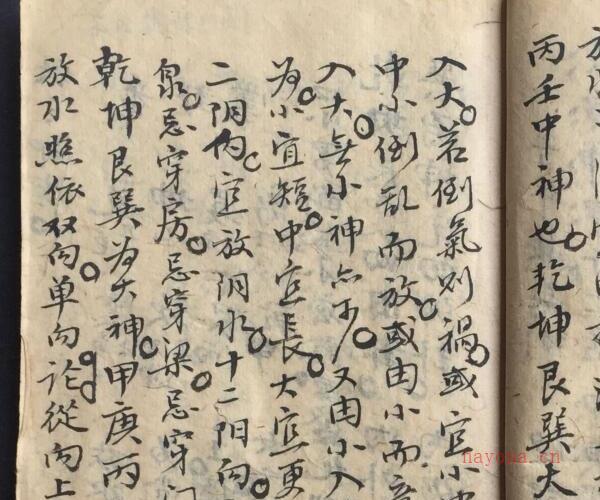 丙壬中神也。乾坤艮巽大
入大。若倒氣则禍。或宜小中
中小倒乱而放。或由小而
入大。無小神亦可。又由小入
为小宜短。中宜長。大宜更
二阴内。宜放阴水。十二阴向
泉。忌穿房。忌穿梁。忌穿门
乾坤艮巽为大神。甲庚丙
放水照依双向。单向论。從向上
nayona.cn